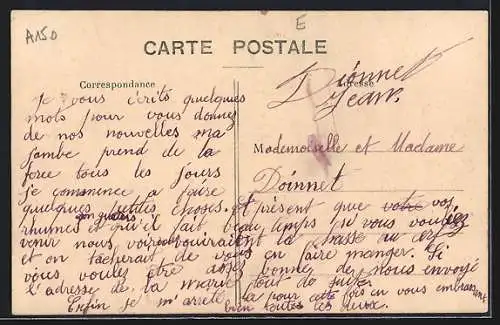 A150
E
CARTE POSTALE
Correspondance
Adresse
Dionnet
Jean.
Mademoiselle et Madame
Doinnet
Je vous écrits quelques
mots pour vous donnez
de nos nouvelles ma
jambe prend de la
force tous les jours
je commence a faire
quelques petites choses. et présent que votre vos
rhumes son guéris et qu'il fait beau temps si vous vouliez
venir nous voir la chasse au cerf
et on tacherait de vous en faire manger. Si
vous voulez être assez bonne de nous envoyé
l'adresse de la Marie tout de suite.
Enfin je m'arrete la pour cette fois en vous embrassant
bien toutes les deux.